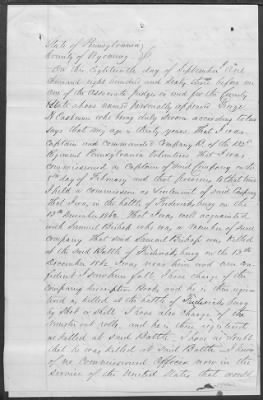 State of Pennsylvania
County of Wyoming
On this Eighteenth day of September One
thousand eight hundred and Sixty three before me
one of the associate judges in and for the County
& State above named personally appeared George
N. who being duly sworn according to law
says that my age is thirty years. That I was
Captain and Commanded Company B. of the 132d
Regiment Pennsylvania Volunteers that I was
commissioned as Captain of said Company on the
day of February and that previous to that time
I held a commission as Lieutenant of said Company
that I was in the battle of Fredericksburg on the
13th December 1862. That I was well acquainted
with Samuel Bishop who was a member of said
Company that said Samuel Bishop was killed
at the said Battle of Fredericksburg on the 13th
December 1862. I was near him and am con
fident I saw him fall. I have charge of the
Company descriptive Book, and he is there regis
tered as killed at the battle of Fredericksburg
by Shot or Shell. I have also charge of the
muster out rolls, and he is there registered
as killed at said Battle. I have no doubt
that he was killed at said Battle. I know
of no Commissioned Officer now in the
service of the United States that would